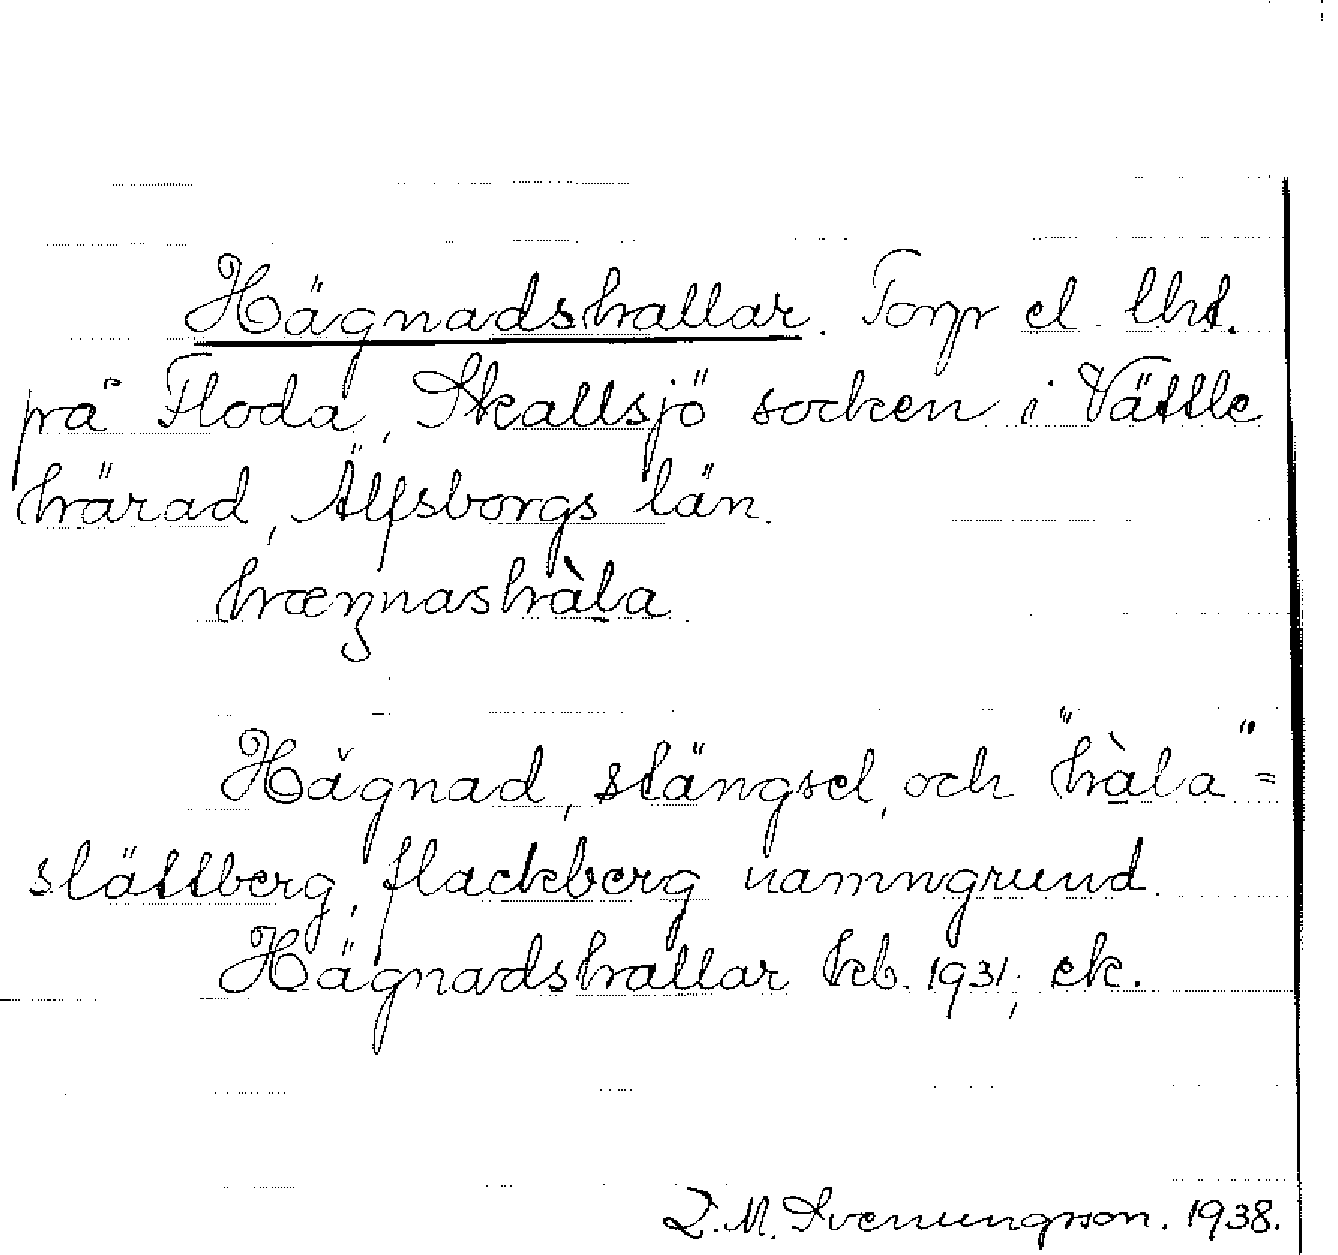 Hägnadshallar. Torp el. lht.
på Floda, Skallsjö socken i Vättle
härad, Älfsborgs län.
hæŋnashàla
Hägnad, stängsel, och "hàla" =
slättberg, flackberg namngrund.
Hägnadshallar kb. 1931; ek.
D.M. Svenungsson. 1938.